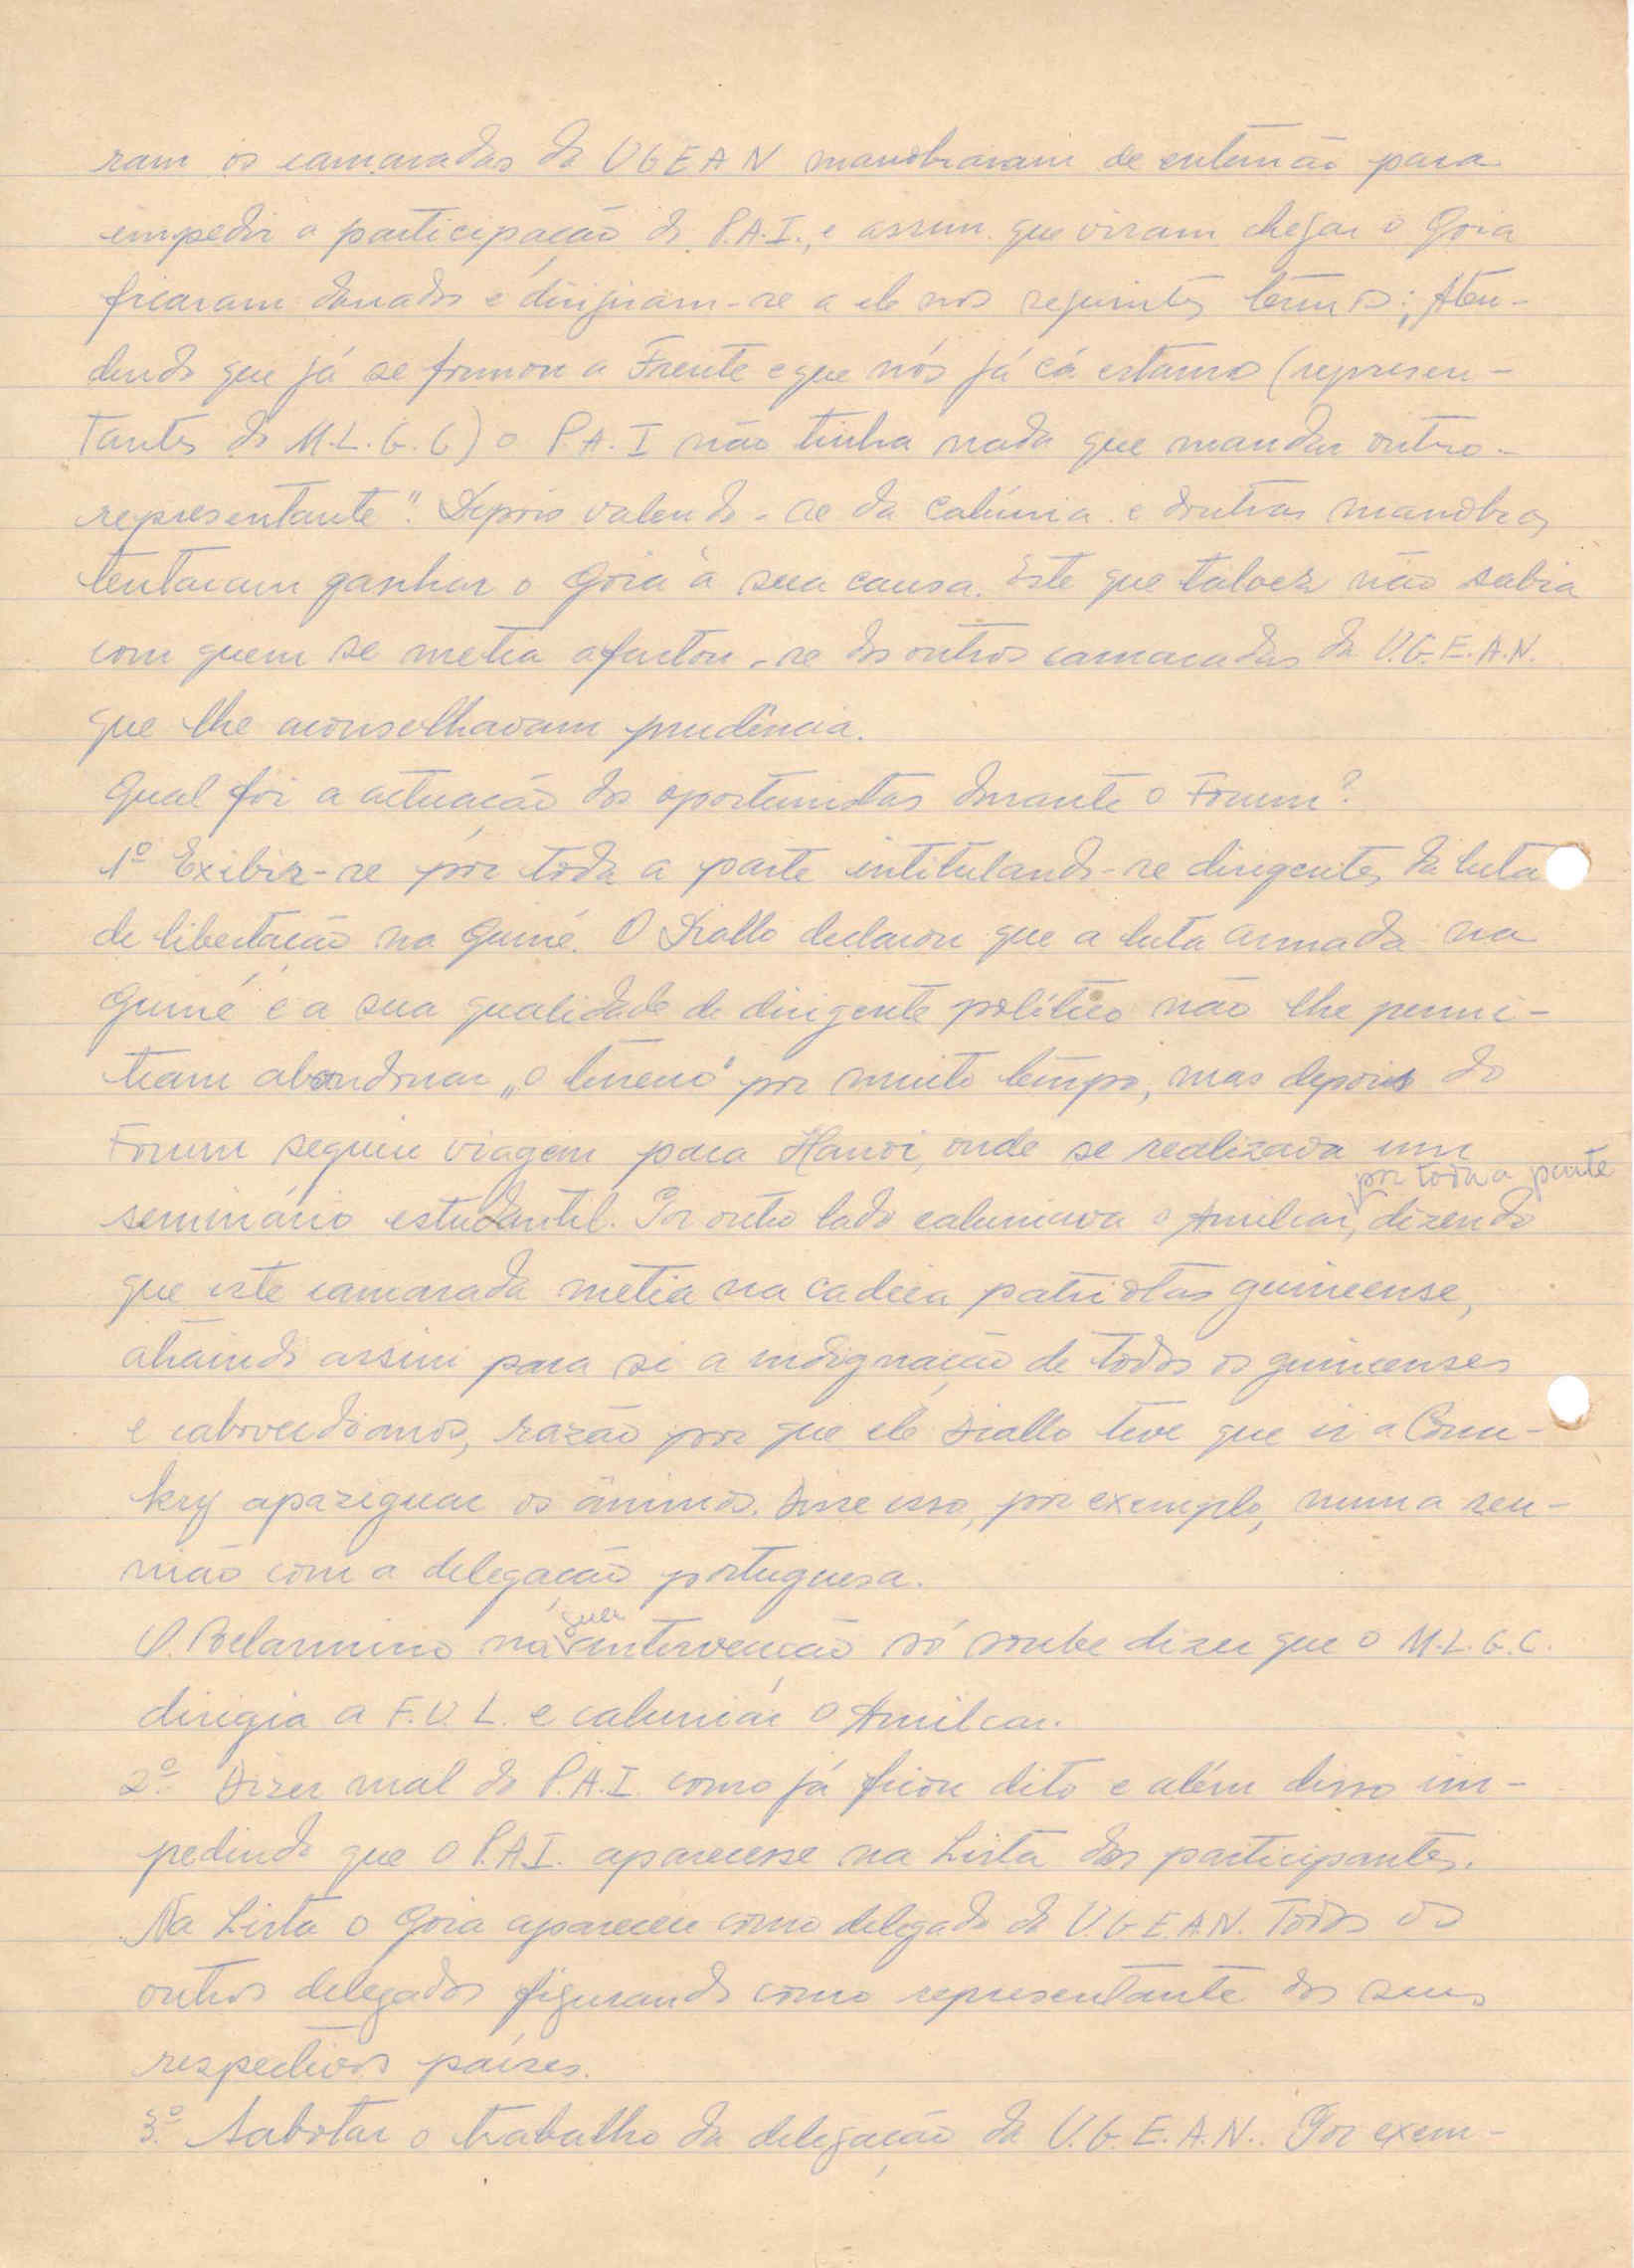 ram os camaradas da UGEAN manobraram de antemão para
impedir a participação do P.A.I., e assim que viram chegar o Goia
ficaram danados e dirigiram-se a ele nos seguintes termos: Aten-
dendo que já se formou a Frente e que nós já cá estamos (represen-
tantes do M.L.G.C) o P.A.I não tinha nada que mandar outro
representante". Depois valendo-se da calúnia e doutras manobras
tentaram ganhar o Goia à sua causa. Este que talvez não sabia
com quem se metia afastou-se dos outros camaradas da U.G.E.A.N.
que lhe aconselhavam prudência.
Qual foi a actuação dos oportunistas durante o Forum?
1º Exibir-se por toda a parte intitulando-se dirigentes da luta
de libertação na Guiné. O Diallo declarou que a luta armada na
Guiné e a sua qualidade de dirigente político não lhe permi-
tiam abandonar „o terreno" por muito tempo, mas depois do
Forum seguiu viagem para Hanoi, onde se realizava um
seminário estudantil. Por outro lado caluniava o Amilcar, por toda a parte dizendo
que este camarada metia na cadeia patriotas guineense,
atraindo assim para si a indignação de todos os guineenses
e caboverdianos, razão por que ele Diallo teve que ir a Cona-
kry apaziguar os ânimos. Disse isso, por exemplo, numa reu-
nião com a delegação portuguesa.
O. Belarmino na intervenção só soube dizer que o M.L.G.C.
dirigia a F.U.L. e caluniar o Amilcar.
2º Dizer mal do P.A.I. como já ficou dito e além disso im-
pedindo que o P.A.I. aparecesse na Lista dos participantes.
Na Lista o Goia apareceu como delegado da U.G.E.A.N. Todos os
outros delegados figurando como representante dos seus
respectivos países.
3º Sabotar o trabalho da delegação da U.G.E.A.N.. Por exem-